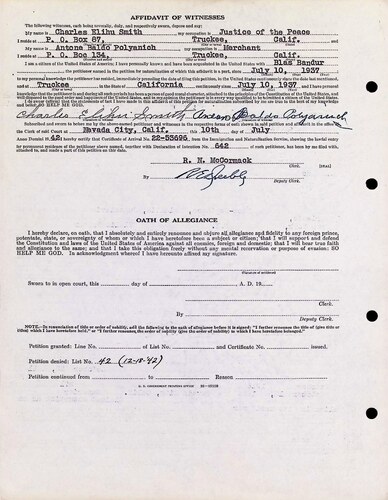 AFFIDAVIT OF WITNESSES
The following witnesses, each being severally, duly, and respectively sworn, depose and say:
My name is Charles Elihu Smith my occupation is Justice of the Peace
I reside at P. O. Box 87, Truckee, Calif.
My name is Antone Baldo Polyanich my occupation is Merchant
I reside at P. O. Boc 134, Truckee, Calif.
I am a citizen of the United States of America; I have personally known and have been acquainted in the United States with Blas Bandur
the petitioner named in the petition for naturalization of which this affidavit is a part, since July 10, 1937
to my personal knowledge the petitioner has resided, immediately preceding the date of filing this petition, in the United States continuously since the date last mentioned, and
at Truckee in the State of California continuously since July 10, 1937 and I have personal
Charles Elihu Smith Anton Baldo Polyanich
Subscribed and sworn to before me by the above-named petitioner and witnesses in the respective forms of oath shown in said petition and affidavit in the office of the
Clerk of said Court at Nevada City, Calif. this 10th day of July
Anno Domini 19 42. I hereby certify that Certificate of Arrival No. 22-53695 from the Immigration and Naturalization Service, showing the lawful entry
for permanent residence of the petitioner above named, together with Declaration of Intention No. 642 of such petitioner, has been by me filed with,
attached to, and made a part of this petition on this date.
R. N. McCormack
Clerk.
By
Deputy Clerk.
OATH OF ALLEGIANCE
I hereby declare, on oath, that I absolutely and entirely renounce and abjure all allegiance and fidelity to any foreign prince,
potentate, state, or sovereignty of whom or which I have heretofore been a subject or citizen; that I will support and defend
the Constitution and laws of the United States of America against all enemies, foreign and domestic; that I will bear true faith
and allegiance to the same; and that I take this obligation freely without any mental reservation or purpose of evasion: SO
HELP ME GOD. In acknowledgment whereof I have hereunto affixed my signature.
(Signature of petitioner)
Sworn to in open court, this day of A. D. 19
Clerk.
By
Deputy Clerk.
NOTE.—In renunciation of title or order of nobility, add the following to the oath of allegiance before it is signed: "I further renounce the title of (give title or
titles) which I have heretofore held," or "I further renounce the order of nobility (give the order of nobility) to which I have heretofore belonged."
Petition granted: Line No. of List No. and Certificate No. issued.
Petition denied: List No. 42 (12-18-42)
Petition continued from to Reason
U. S. GOVERNMENT PRINTING OFFICE